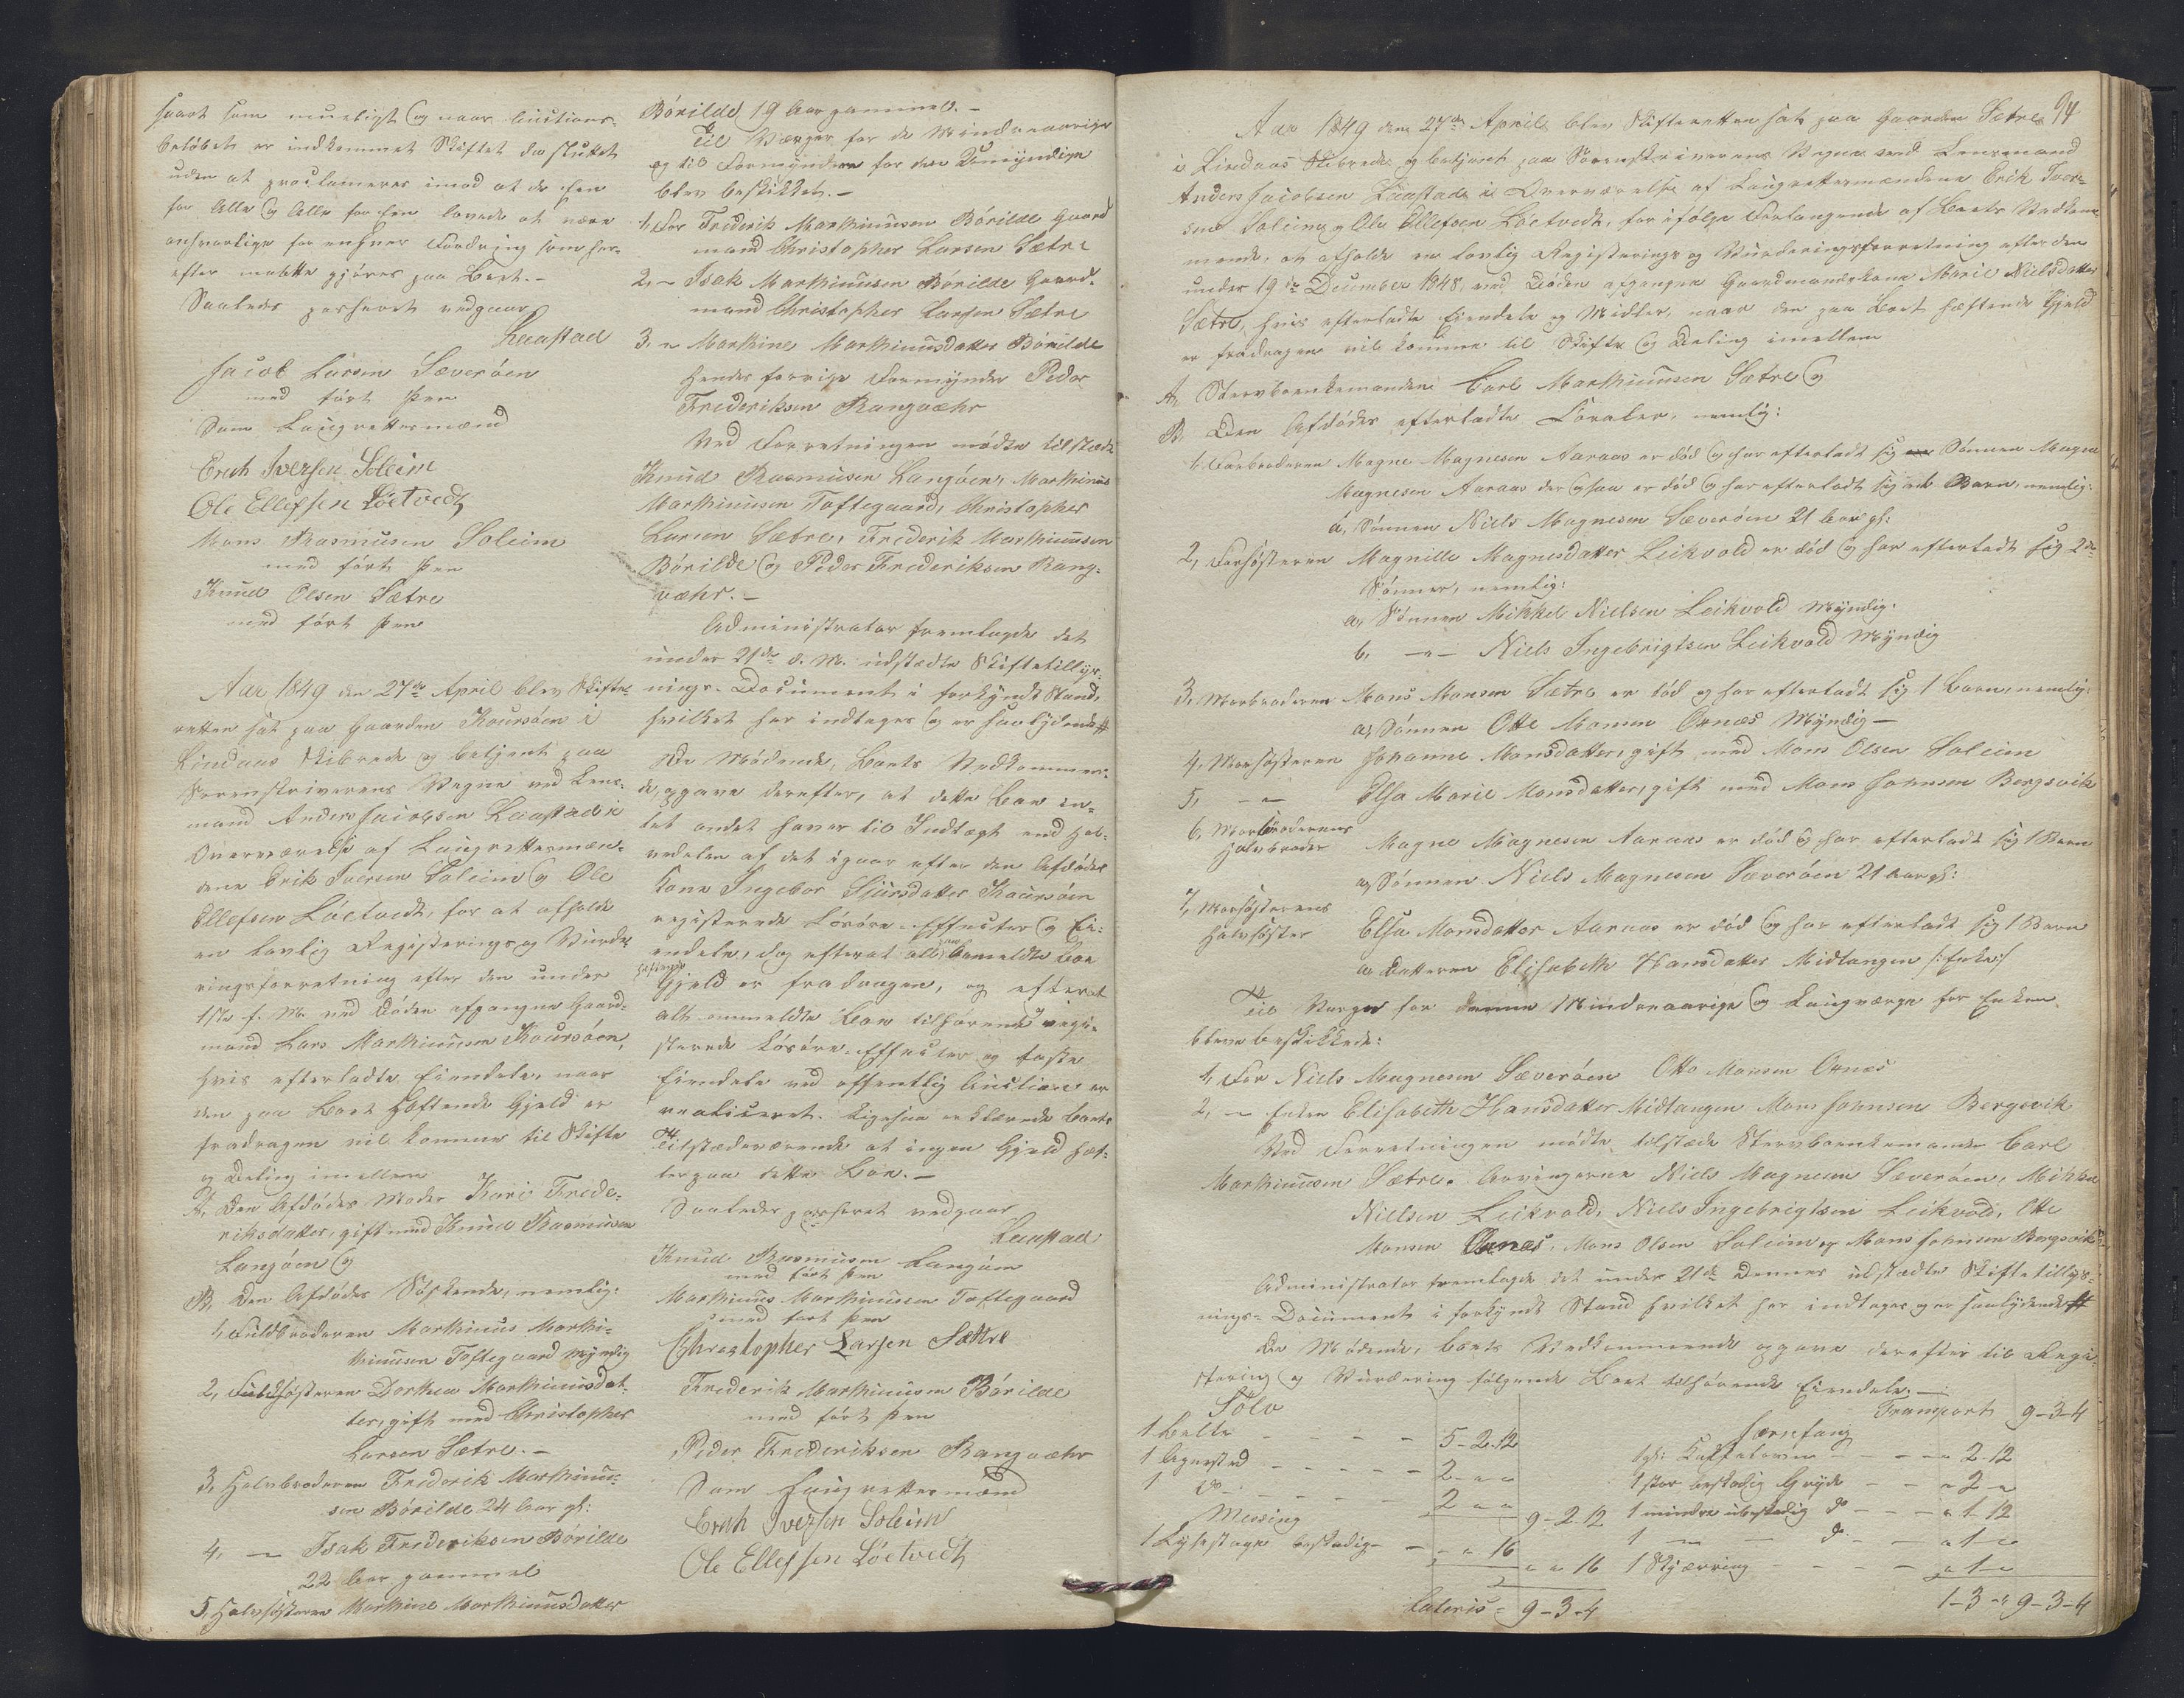 snart som mueligt og naar Auctions-
beløbet er indkommet Skiftet da sluttet
uden at proclameres imod at de Een
for Alle og Alle for Een lovede at være
ansvarlige for enhver Fordring som her-
efter maatte gjøres paa Boet.-
Saaledes passeret vedgaaer
Laastad
Jacob Larsen Sæverøen
med ført Pen
Som Laugrettesmænd
Erich Iversen Soleim
Ole Ellefsen Löetvedt
Mons Rasmusen Soleim
med ført Pen
Knud Olsen Sætre
med ført Pen
Aar 1849 den 27de April blev Skifte-
retten sat paa Gaarden Kaursøen i
Lindaas Skibrede og betjent paa
Sorenskriverens Vegne ved Lens-
mand Anders Jacobsen Laastad i
Overværelse af Laugrettesmæn-
dene Erik Iversen Soleim og Ole
Ellefsen Löetvedt, for at afholde
en lovlig Registerings og Vurde-
ringsforretning efter den under
1ste f. M. ved Døden afgangne Gaard-
mand Lars Marthinusen Kaursøen,
hvis efterladte Eiendele, naar
den paa Boet hæftende Gjeld er
fradragen vil komme til Skifte
og Deling imellem
A, Den Afdødes Moder Kari Frede-
riksdatter, gift med Knud Rasmusen
Langøen og
B, Den Afdødes Søskende, nemlig:
1, Fuldbroderen Marthinus Marthi-
nusen Toftegaard Myndig
2, Fuldsøsteren Dorthea Marthinusdat-
ter, gift med Christopher
Larsen Sætre.-
3, Halvbroderen Frederik Marthinu-
sen Børilde 24 Aar gl:
4, -"- Isak Frederiksen Børilde
22 Aar gammel
5, Halvsøsteren Marthine Marthinusdatter
Børilde, 19 Aar gammel.-
Til Værger for de Mindreaarige
og til Formyndere for den Umyndige
blev beskikket.-
1, For Frederik Marthinusen Børilde Gaard
mand Christopher Larsen Sætre
2, -"- Isak Marthinusen Børilde Gaard-
mand Christopher Larsen Sætre
3, " Marthine Marthinusdatter Børilde
hendes forrige Formynder Peder
Frederiksen Rangvæhr
Ved Forretningen mødte tilstede
Knud Rasmusen Langøen, Marthinus
Marthinusen Toftegaard, Christopher
Larsen Sætre, Frederik Marthinusen
Børilde og Peder Frederiksen Rang-
væhr.-
Administrator fremlagde det
under 21de d. M. udstædte Skiftetillys-
nings-Document i forkyndt Stand,
hvilket her indtages og er saalydende #
De Mødende, Boets Vedkommen-
de, opgave derefter, at dette Boe in-
tet andet haver til Indtægt end Hal-
vedelen af det igaar efter den Afdødes
Kone Ingebor Sjursdatter Kaursøen
registerede Løsøre-Effecter og Ei-
endele, dog efterat all bemeldte Boe
Gjeld er fradragen, og efterat
alt ommeldte Boe tilhørende regi-
sterede Løsøre-Effecter og faste
Eiendele ved offentlig Auction er
realiseret. Ligesaa erklærede Boets
Tilstædeværende at ingen Gjeld hæf-
ter paa dette Boe.-
Saaledes passeret vedgaaer
Laastad
Knud Rasmusen Langøen
med ført Pen
Marthinus Marthinusen Toftegaard
med ført Pen
Christopher Larsen Sættre
Frederik Marthinusen Børilde
med ført Pen
Peder Frederiksen Rangvæhr
Som Laugrettesmænd
Erich Iversen Soleim
Ole Ellefsen Löetvedt
94
Aar 1849 den 27de April blev Skifteretten sat paa Gaarden Sætre
i Lindaas Skibrede og betjent paa Sorenskriverens Vegne ved Lensmand
Anders Jacobsen Laastad i Overværelse af Laugrettesmændene Erik Iver-
sen Soleim og Ole Ellefsen Löetvedt, for ifølge Forlangende af Boets Vedkom-
mende, at afholde en lovlig Registerings og Vurderingsforretning efter den
under 19de December 1848 ved Døden afgangne Gaardmandskone Marie Nielsdatter
Sætre, hvis efterladte Eiendele og Midler, naar den paa Boet hæftende Gjeld
er fradragen vil komme til Skifte og Deling imellem
A, Stervboenkemanden Carl Marthinusen Sætre og
B, Den Afdødes efterladte Loraber, nemlig:
1, Farbroderen Magne Magnesen Aaraas er død og har efterladt sig Sønnen Magne
Magnesen Aaraas der ogsaa er død og har efterladt sig et Barn, nemlig:
a, Sønnen Niels Magnesen Sæverøen 21 Aar gl:
2, Farsøsteren Magnille Magnesdatter Leikvold er død og har efterladt sig 2de
Sønner, nemlig:
a, Sønnen Mikkel Nielsen Leikvold Myndig.
b, -"- Niels Ingebrigtsen Leikvold Myndig
3, Morbroderen Mons Monsen Sætre er død og har efterladt sig 1 Barn, nemlig:
a, Sønnen Otte Monsen Ornæs Myndig -
4, Morsøsteren Johanne Monsdatter, gift med Mons Olsen Soleim
5, -"- Elsa Marie Monsdatter, gift med Mons Johnsen Bergsvik
6, Morbroderens
Halvbroder Magne Magnesen Aaraas er død og har efterladt sig 1 Barn
a, Sønnen Niels Magnesen Sæverøen 21 Aar gl:
7, Morsøsterens
Halvsøster Elsa Monsdatter Aaraas er død og har efterladt sig 1 Barn
a, Datteren Elisabeth Hansdatter Midtangen /: Enke :/
Til Værger for denne Mindreaarige og Laugværge for Enken
bleve beskikkede:
1, For Niels Magnesen Sæverøen Otto Monsen Ornæs
2, -"- Enken Elisabeth Hansdatter Midtangen Mons Johnsen Bergsvik
Ved Forretningen mødte tilstæde Stervboenkemanden Carl
Marthinusen Sætre. Arvingerne Niels Magnesen Sæverøen, Mikkel
Nielsen Leikvold, Niels Ingebrigtsen Leikvold, Otte
Monsen Ornæs, Mons Olsen Soleim og Mons Johnsen Bergsvik
Administrator fremlagde det under 21de Dennes udstædte Skiftetillys-
nings-Document i forkyndt Stand hvilket her indtages og er saalydende #
De Mødende, Boets Vedkommende opgave derefter til Regi-
stering og Vurdering følgende Boet tilhørende Eiendele: -
Sølv
1 Belte - - - - 5-2-12
1 - - - - 2-"-"
1 do - - - - 2-"-"
9-2-12
Messing
1 Lysestage beskadig - - "-"-16
"-"-16
Lateris = 9-3-4
Transport 9-3-4
Jernfang
1 gl: - - - "-2-12
1 stor beskadig Gryde - - "-2-"
1 mindre ubeskadig do - - "-1-12
1 -"- - do - "-1-"
1 Skjærring - - - - "-1-"
1-3-" 9-3-4